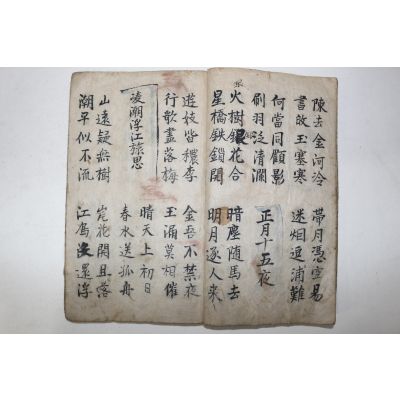 陳去金河冷
書敀玉塞寒
帶月憑空易
迷烟逗浦難
何當同顧影
刷羽泛清瀾
正月十五夜
火樹銀花合
星橋鉄鎖開
暗塵随馬去
明月逐人来
遊妓皆穠李
行歌盡落梅
金吾不禁夜
玉漏莫相催
凌潮浮江旅思
晴天上初日
春水送孤舟
山遠疑無樹
潮平似不流
岸花開且落
江鳥没還浮